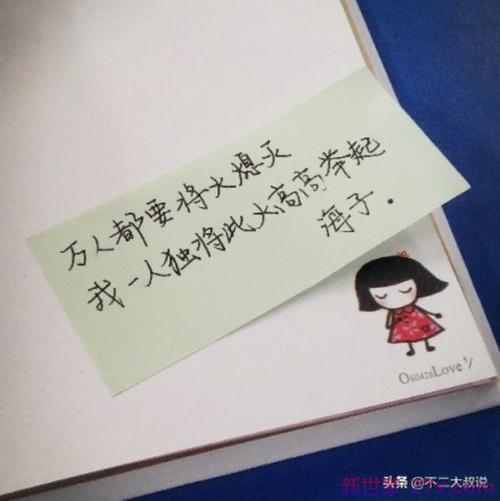 万人都要将火熄灭
我一人独将此火高高举起
海子.
O60426Love
头条 @不二大叔说